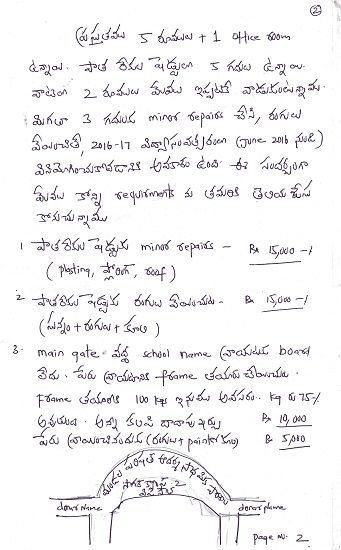 ②
ప్రస్తుతము 5 రూములు + 1 office room
ఉన్నాయి. పాత రేకుల షెడ్డులో 5 గదులు ఉన్నాయి.
వాటిలో 2 రూములు మేము ఇప్పటికే వాడుకుంటున్నాము.
మిగతా 3 గదులకు minor repairs చేసి, రంగులు
వేయించితే, 2016-17 విద్యా సంవత్సరంలో (June 2016 నుండి)
వినియోగించుకోవడానికి అవకాశం ఉంది. ఈ సందర్భంగా
మేము కొన్ని requirments ను తమరికి తెలియ చేసు
కొనుచున్నాము
1 పాత రేకుల షెడ్డుకు minor repairs - Rs 15,000-/
(plasting, ఫ్లోరింగ్, roof)
2 పాత రేకుల షెడ్డుకు రంగులు వేయించుట - Rs 15,000-/
(సున్నం + రంగులు + కూలి)
3. main gate వద్ద school name వ్రాయుటకు board
లేదు. పేరు వ్రాయడానికి frame తయారు చేయించుట.
Frame తయారీకి 100 kgs ఇనుము అవసరం. kg రు 75/-
అవుతుంది. అన్ని కలిపి దాదాపు ఖర్చు Rs 10,000
పేరు వ్రాయించినందుకు (రంగులు + painter కూలి) Rs 5,000
మండల పరిషత్ ఆదర్శ ప్రాథమిక పాఠశాల
donar name
donar name
page no. 2